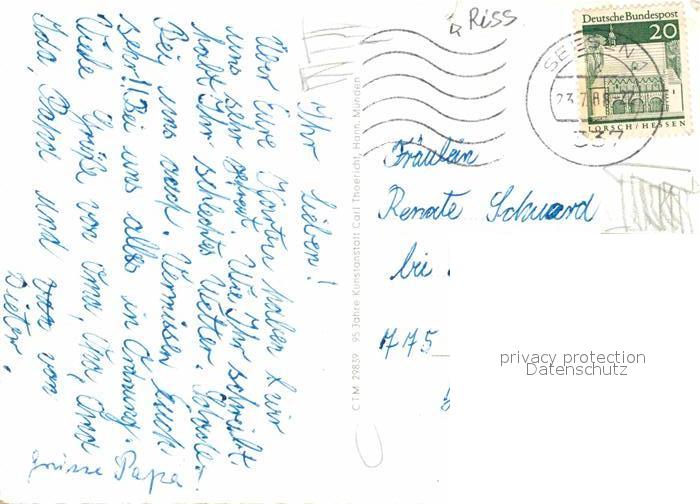 Ihr Lieben!
Über Eure Karten haben wir
uns sehr gefreut. Wie Ihr schreibt,
habt Ihr schlechtes Wetter. Schade!
Bei uns auch. Vermissen Euch
sehr!! Bei uns alles in Ordnung.
Viele Grüße von Oma, Opa,
Ida, Papa und von
Dieter.
grüsse Papa
C.T.M. 29839 95 Jahre Kunstanstalt Carl Thoericht, Hann. Münden
Riss
Deutsche Bundespost
20
LORSCH/HESSEN
SEESEN
337
Fräulein
Renate Schward
bei
775
privacy protection
Datenschutz